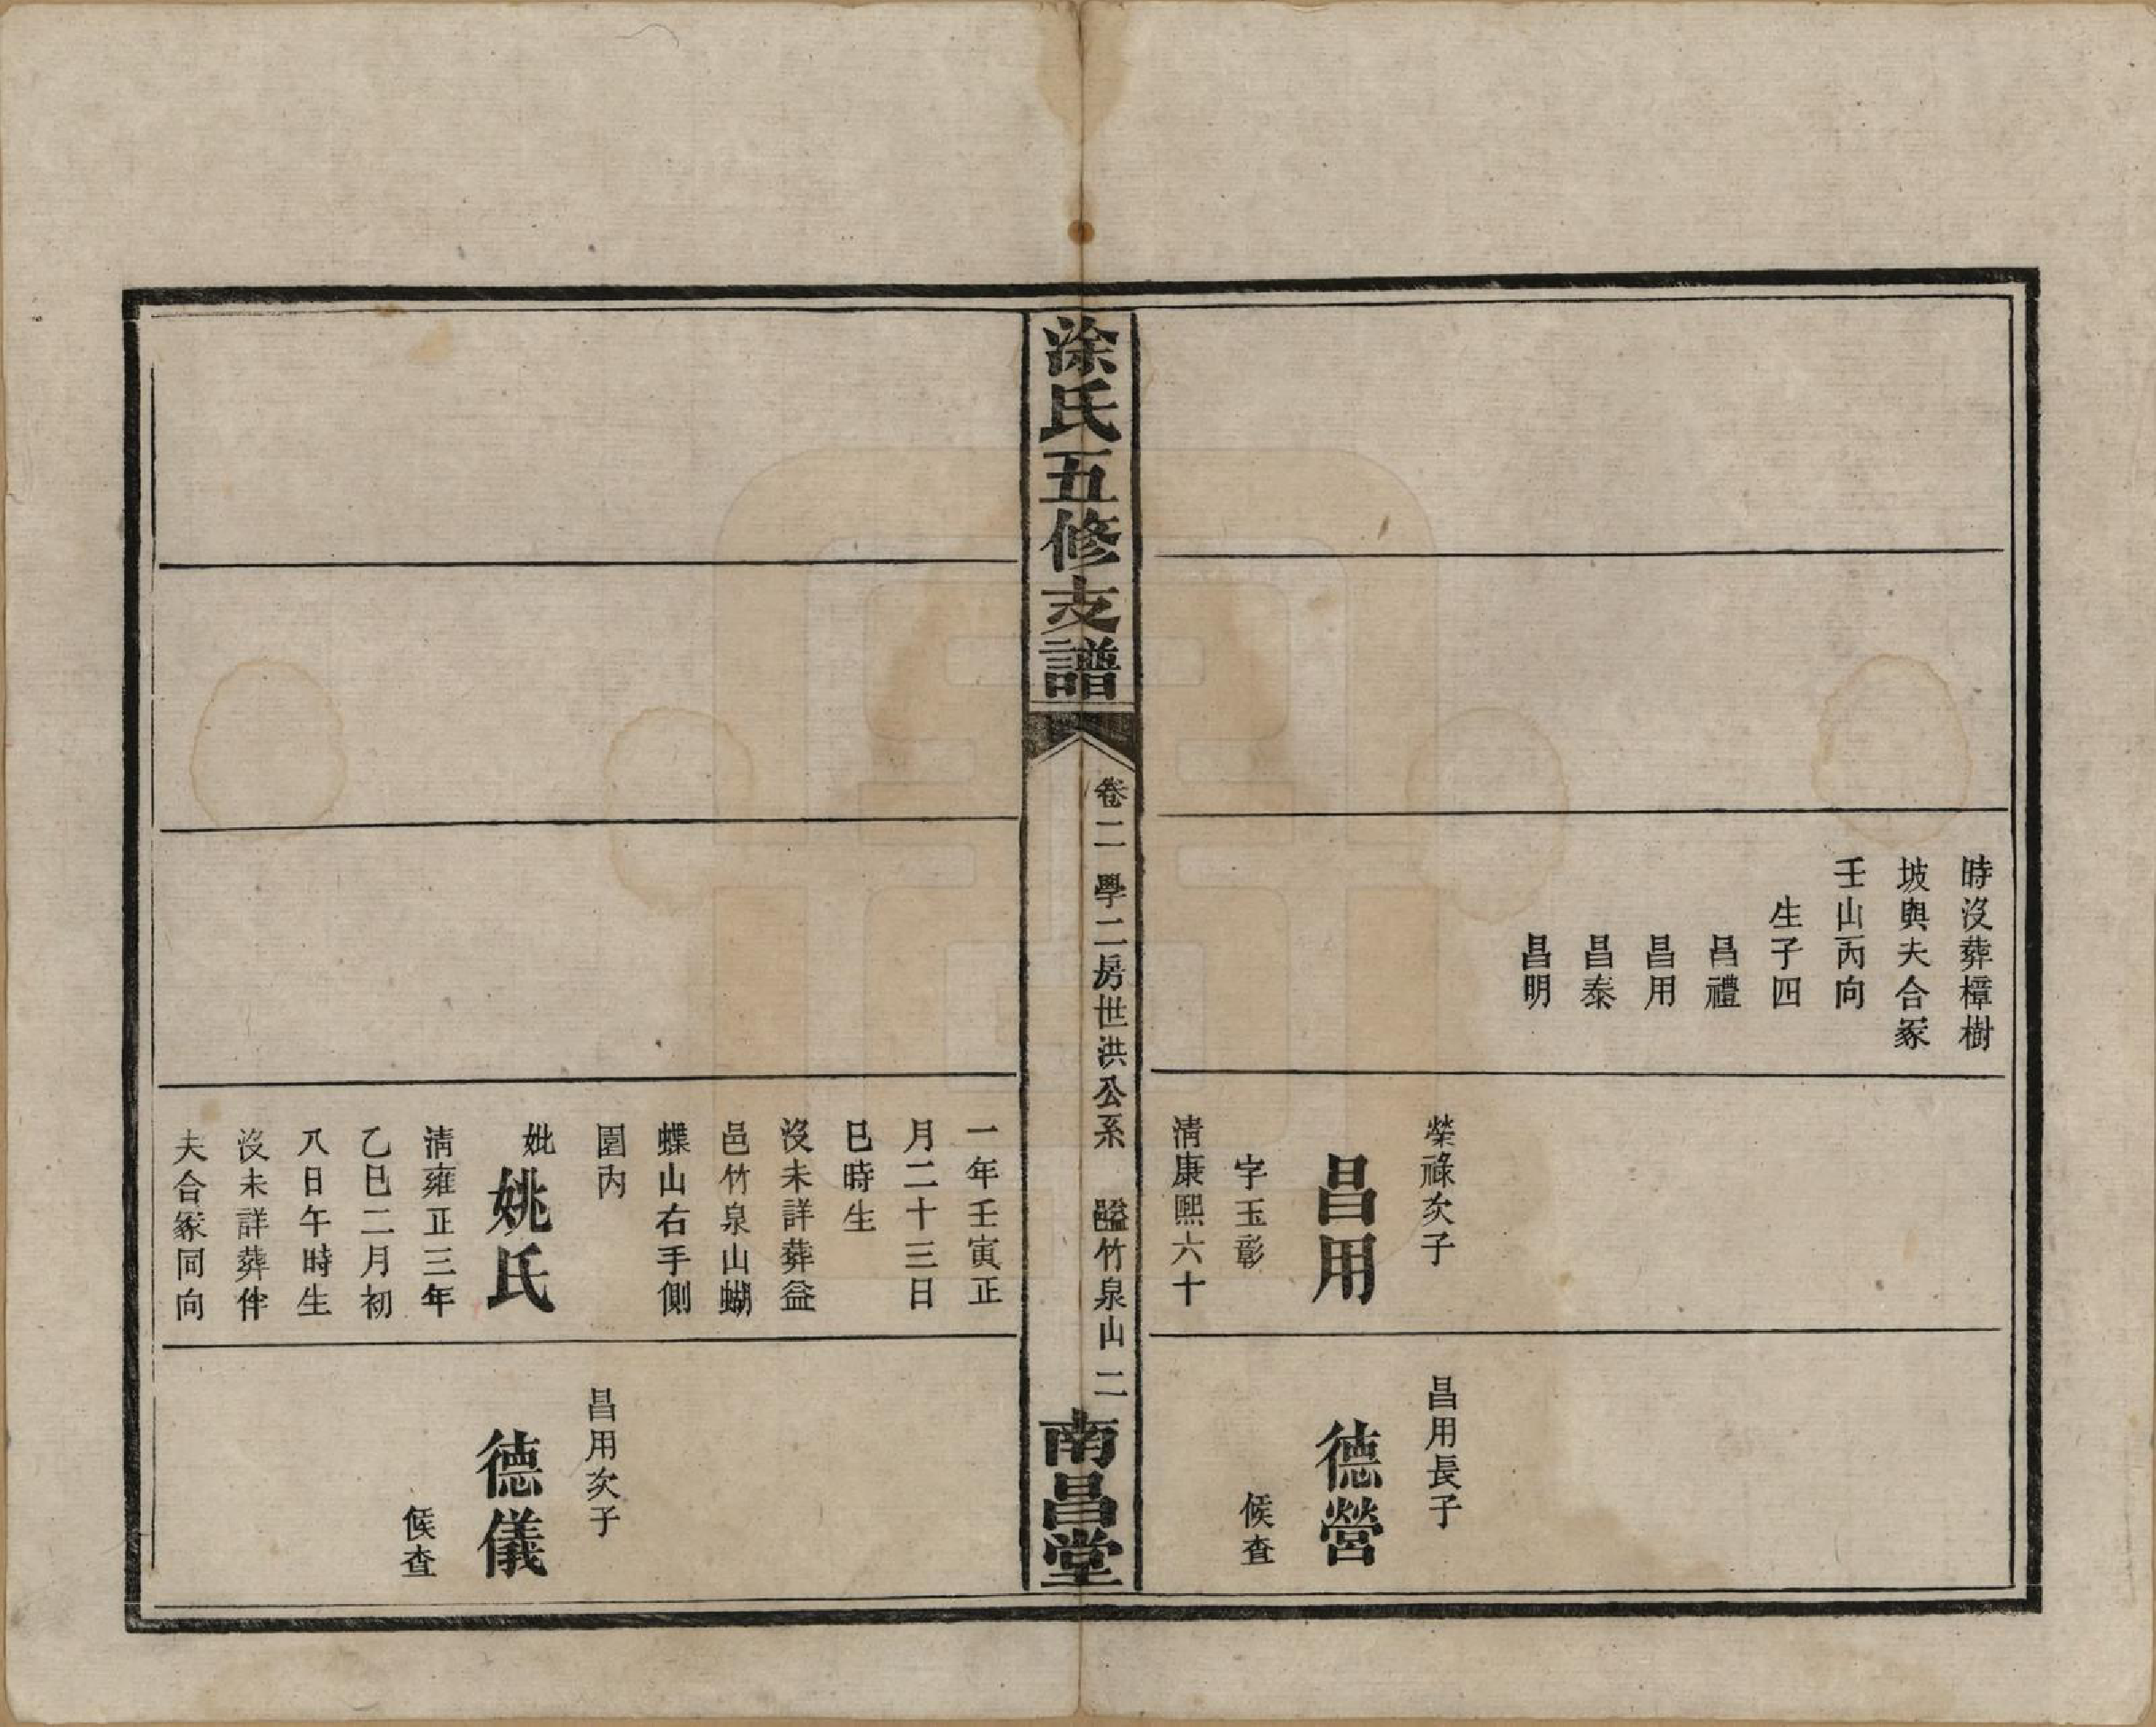 時沒葬樟樹
坡與夫合冢
壬山丙向
生子四
昌禮
昌用
昌泰
昌明
榮祿次子
昌用
字玉彰
清康熙六十
昌用長子
德營
候查
涂氏五修支譜
卷二 學二房世洪公系 益竹泉山 二
南昌堂
一年壬寅正
月二十三日
巳時生
沒未詳葬益
邑竹泉山蝴
蝶山右手側
園內
妣
姚氏
清雍正三年
乙巳二月初
八日午時生
沒未詳葬伴
夫合冢同向
昌用次子
德儀
候查